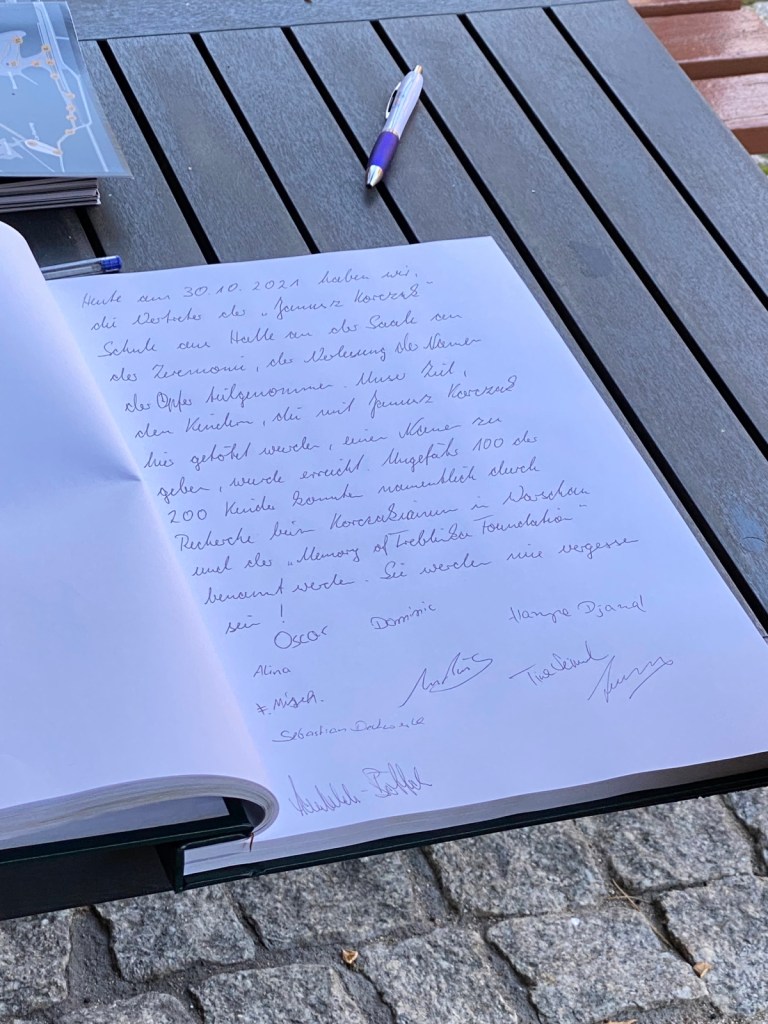 Heute am 30.10.2021 haben wir,
die Vertreter der „Janusz Korczak“
Schule aus Halle an der Saale an
der Zeremonie, der Verlesung der Namen
der Opfer teilgenommen. Unser Ziel,
den Kindern, die mit Janusz Korczak
hier getötet wurden, einen Namen zu
geben, wurde erreicht. Ungefähr 100 der
200 Kinder konnten namentlich durch
Recherche beim Korczakianum in Warschau
und der „Memory of Treblinka Foundation“
benannt werden. Sie werden nie vergessen
sein!
Oscar Dominic
Alina